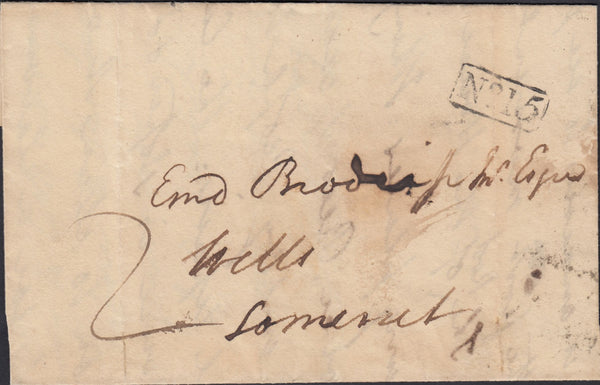 No 15
Emd Broderip Jnr. Esqre
Wells
2
Somerset